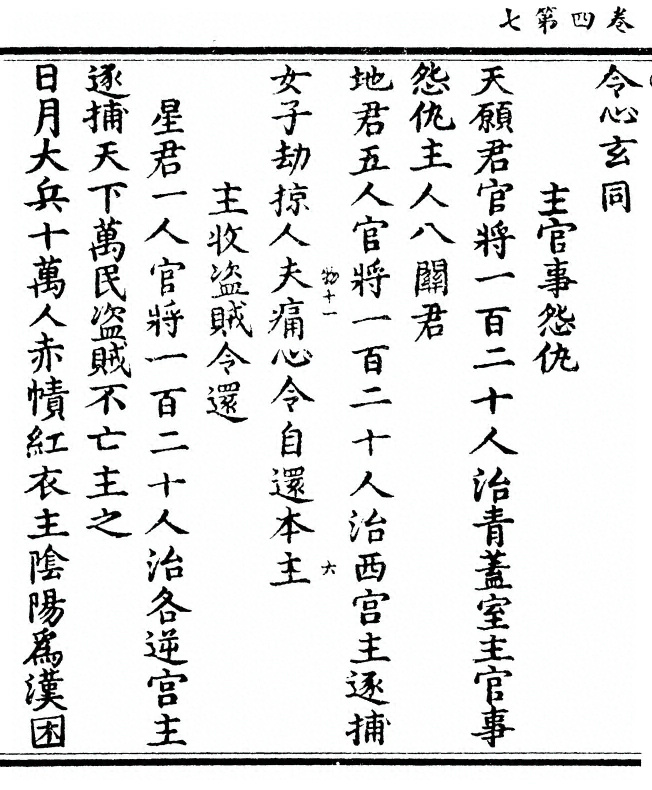 卷四第七
令心玄同
主官事怨仇
天願君官將一百二十人治青蓋室主官事
怨仇主人八關君
地君五人官將一百二十人治西宫主逐捕
物十一
六
女子劫掠人夫痛心令自還本主
主收盗賊令還
星君一人官將一百二十人治各逆宫主
逐捕天下萬民盗賊不亡主之
日月大兵十萬人赤幘紅衣主陰陽爲漢